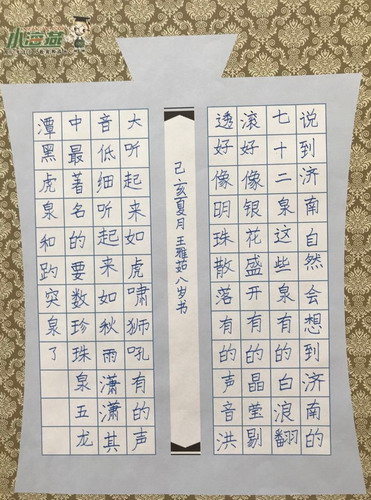 说到济南自然会想到济南的
七十二泉这些泉有的白浪翻
滚好像银花盛开有的晶莹剔
透好像明珠散落有的声音洪
己亥夏月王雅茹八岁书
大听起来如虎啸狮吼有的声
音低细听起来如秋雨潇潇其
中最著名的要数珍珠泉五龙
潭黑虎泉和趵突泉了